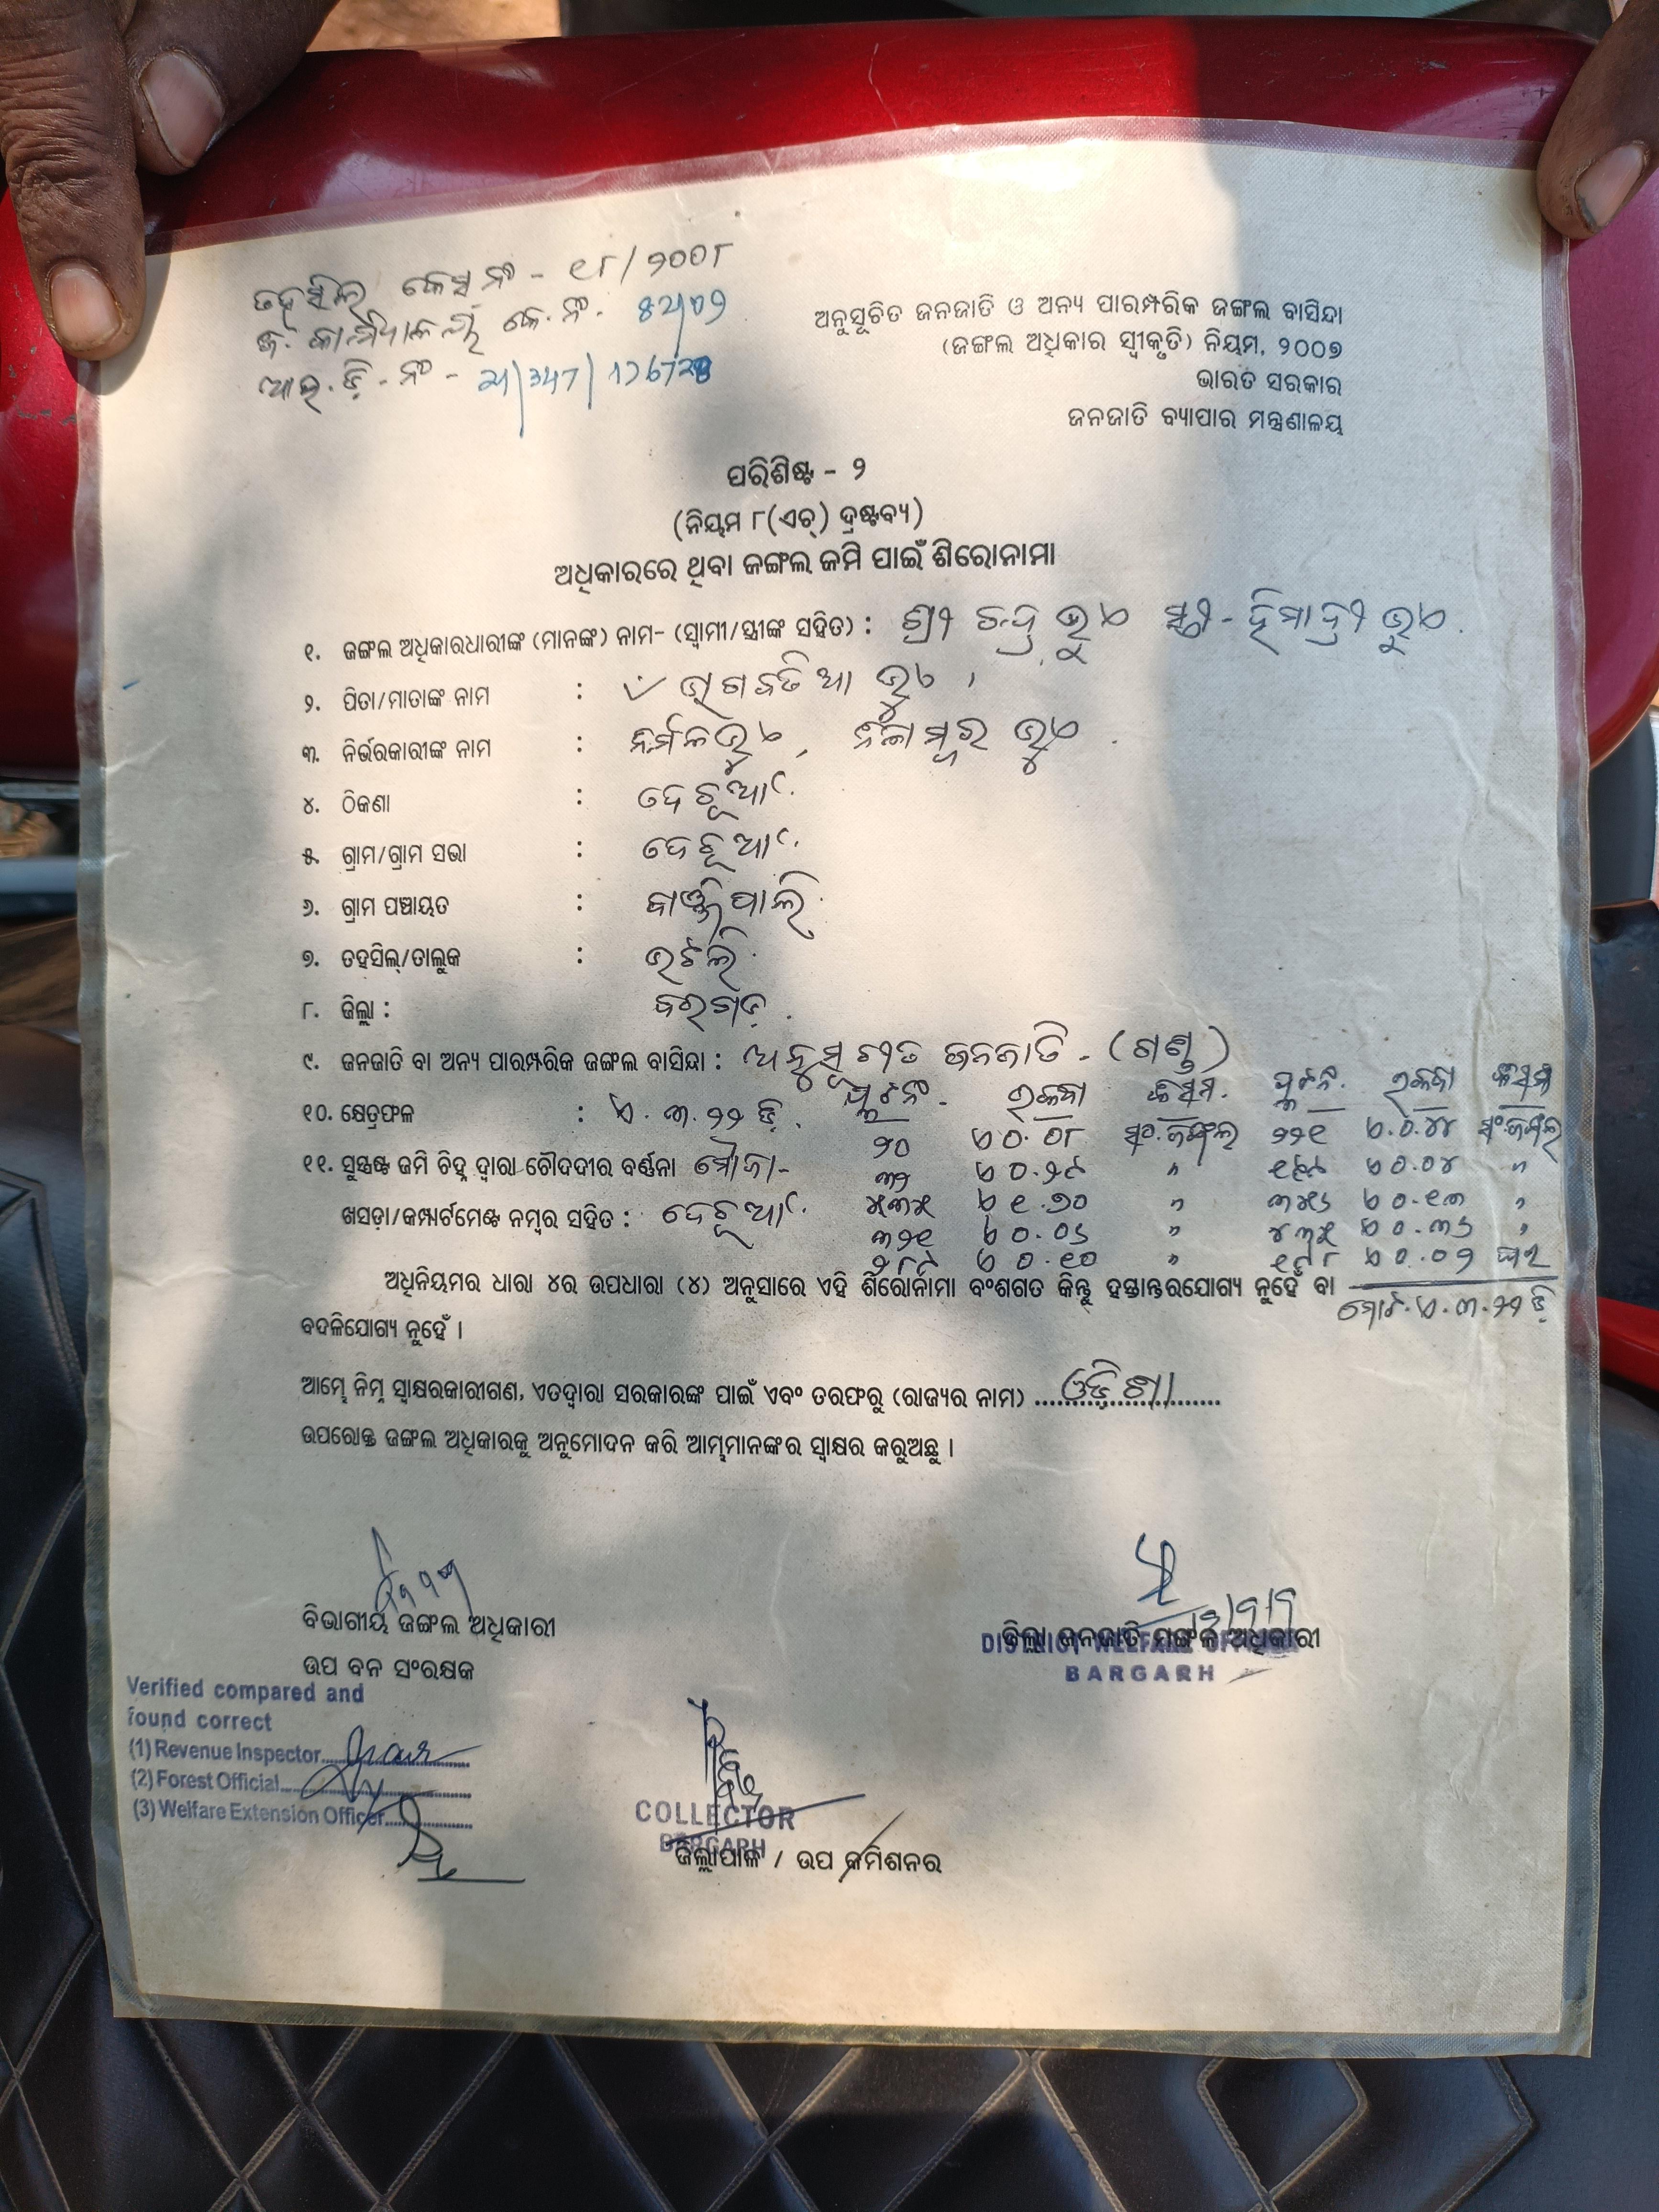 ତହସିଲ କେସ୍ ନଂ - ୧୮/୨୦୦୮
କେ. ନଂ.
ଆଇ.ଡ଼ି. ନଂ -
ଅନୁସୂଚିତ ଜନଜାତି ଓ ଅନ୍ୟ ପାରମ୍ପରିକ ଜଙ୍ଗଲ ବାସିନ୍ଦା
(ଜଙ୍ଗଲ ଅଧିକାର ସ୍ୱୀକୃତି) ନିୟମ, ୨୦୦୭
ଭାରତ ସରକାର
ଜନଜାତି ବ୍ୟାପାର ମନ୍ତ୍ରଣାଳୟ
ପରିଶିଷ୍ଟ - ୨
(ନିୟମ ୮(ଏଚ୍) ଦ୍ରଷ୍ଟବ୍ୟ)
ଅଧିକାରରେ ଥିବା ଜଙ୍ଗଲ ଜମି ପାଇଁ ଶିରୋନାମା
୧. ଜଙ୍ଗଲ ଅଧିକାରଧାରୀଙ୍କ (ମାନଙ୍କ) ନାମ- (ସ୍ୱାମୀ/ସ୍ତ୍ରୀଙ୍କ ସହିତ) : ଶ୍ରୀ ଚନ୍ଦ୍ର ଭୁଏ ସ୍ତ୍ରୀ - ହିମାଦ୍ରୀ ଭୁଏ.
୨. ପିତା/ମାତାଙ୍କ ନାମ : ଭାଗବତିଆ ଭୁଏ ।
୩. ନିର୍ଭରକାରୀଙ୍କ ନାମ : ନିର୍ମଳ ଭୁଏ, ନିଳାମ୍ବର ଭୁଏ.
୪. ଠିକଣା : ଦେଚୂଆଁ.
୫. ଗ୍ରାମ/ଗ୍ରାମ ସଭା : ଦେଚୂଆଁ.
୬. ଗ୍ରାମ ପଞ୍ଚାୟତ :
୭. ତହସିଲ୍/ତାଲୁକ : ଭଟଲି.
୮. ଜିଲ୍ଲା : ବରଗଡ଼.
୯. ଜନଜାତି ବା ଅନ୍ୟ ପାରମ୍ପରିକ ଜଙ୍ଗଲ ବାସିନ୍ଦା : ଅନୁସୂଚୀତ ଜନଜାତି - (ଗଣ୍ଡ)
ପ୍ଲଟ ନଂ. ରକବା କିସମ. ପ୍ଲଟ ନଂ. ରକବା କିସମ
୧୦. କ୍ଷେତ୍ରଫଳ : ଏ. ୩.୨୨ ଡି. ୨୦ ଏ ୦.୦୮ ସଂ.ଜଙ୍ଗଲ ୨୨୧ ଏ.୦.୪୪ ସଂ.ଜଙ୍ଗଲ
୧୧. ସୁସ୍ପଷ୍ଟ ଜମି ଚିହ୍ନ ଦ୍ୱାରା ଚୌଦଦୀର ବର୍ଣ୍ଣନା ମୌଜା- ୩୨ ଏ ୦.୨୯ " ୧୫୯ ଏ ୦.୦୪ "
ଖସଡ଼ା/କମ୍ପାର୍ଟମେଣ୍ଟ ନମ୍ବର ସହିତ : ଦେଚୂଆଁ. ୪୩୫ ଏ ୧.୬୦ " ୩୪୬ ଏ ୦.୧୩ "
୩୨୧ ଏ ୦.୦୬ " ୪୩୫ ଏ ୦.୩୬ "
୨୮୯ ଏ ୦.୧୦ ୧୯୮ ଏ ୦.୦୨ ଘର
ଅଧିନିୟମର ଧାରା ୪ର ଉପଧାରା (୪) ଅନୁସାରେ ଏହି ଶିରୋନାମା ବଂଶଗତ କିନ୍ତୁ ହସ୍ତାନ୍ତରଯୋଗ୍ୟ ନୁହେଁ ବା
ମୋଟ. ଏ.୩.୨୨ ଡି
ବଦଳିଯୋଗ୍ୟ ନୁହେଁ ।
ଆମ୍ଭେ ନିମ୍ନ ସ୍ୱାକ୍ଷରକାରୀଗଣ, ଏତଦ୍ୱାରା ସରକାରଙ୍କ ପାଇଁ ଏବଂ ତରଫରୁ (ରାଜ୍ୟର ନାମ) ଓଡ଼ିଶା
ଉପରୋକ୍ତ ଜଙ୍ଗଲ ଅଧିକାରକୁ ଅନୁମୋଦନ କରି ଆମ୍ଭମାନଙ୍କର ସ୍ୱାକ୍ଷର କରୁଅଛୁ ।
ବିଭାଗୀୟ ଜଙ୍ଗଲ ଅଧିକାରୀ
ଉପ ବନ ସଂରକ୍ଷକ
ଜିଲ୍ଲା ଜନଜାତି ମଙ୍ଗଳ ଅଧିକାରୀ
DISTRICT WELFARE OFFICER
BARGARH
Verified compared and
found correct
(1) Revenue Inspector
(2) Forest Official
(3) Welfare Extension Officer
COLLECTOR
BARGARH
ଜିଲ୍ଲାପାଳ / ଉପ କମିଶନର